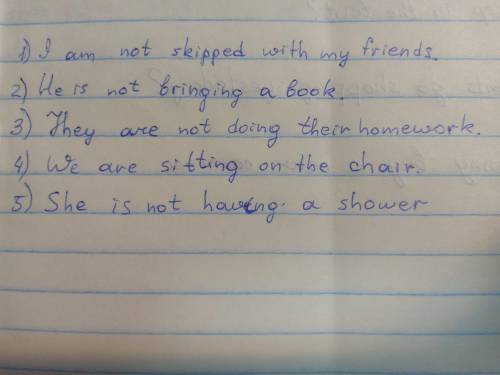 1) I am not skipped with my friends.
2) He is not bringing a book.
3) They are not doing their homework.
4) We are sitting on the chair.
5) She is not having a shower